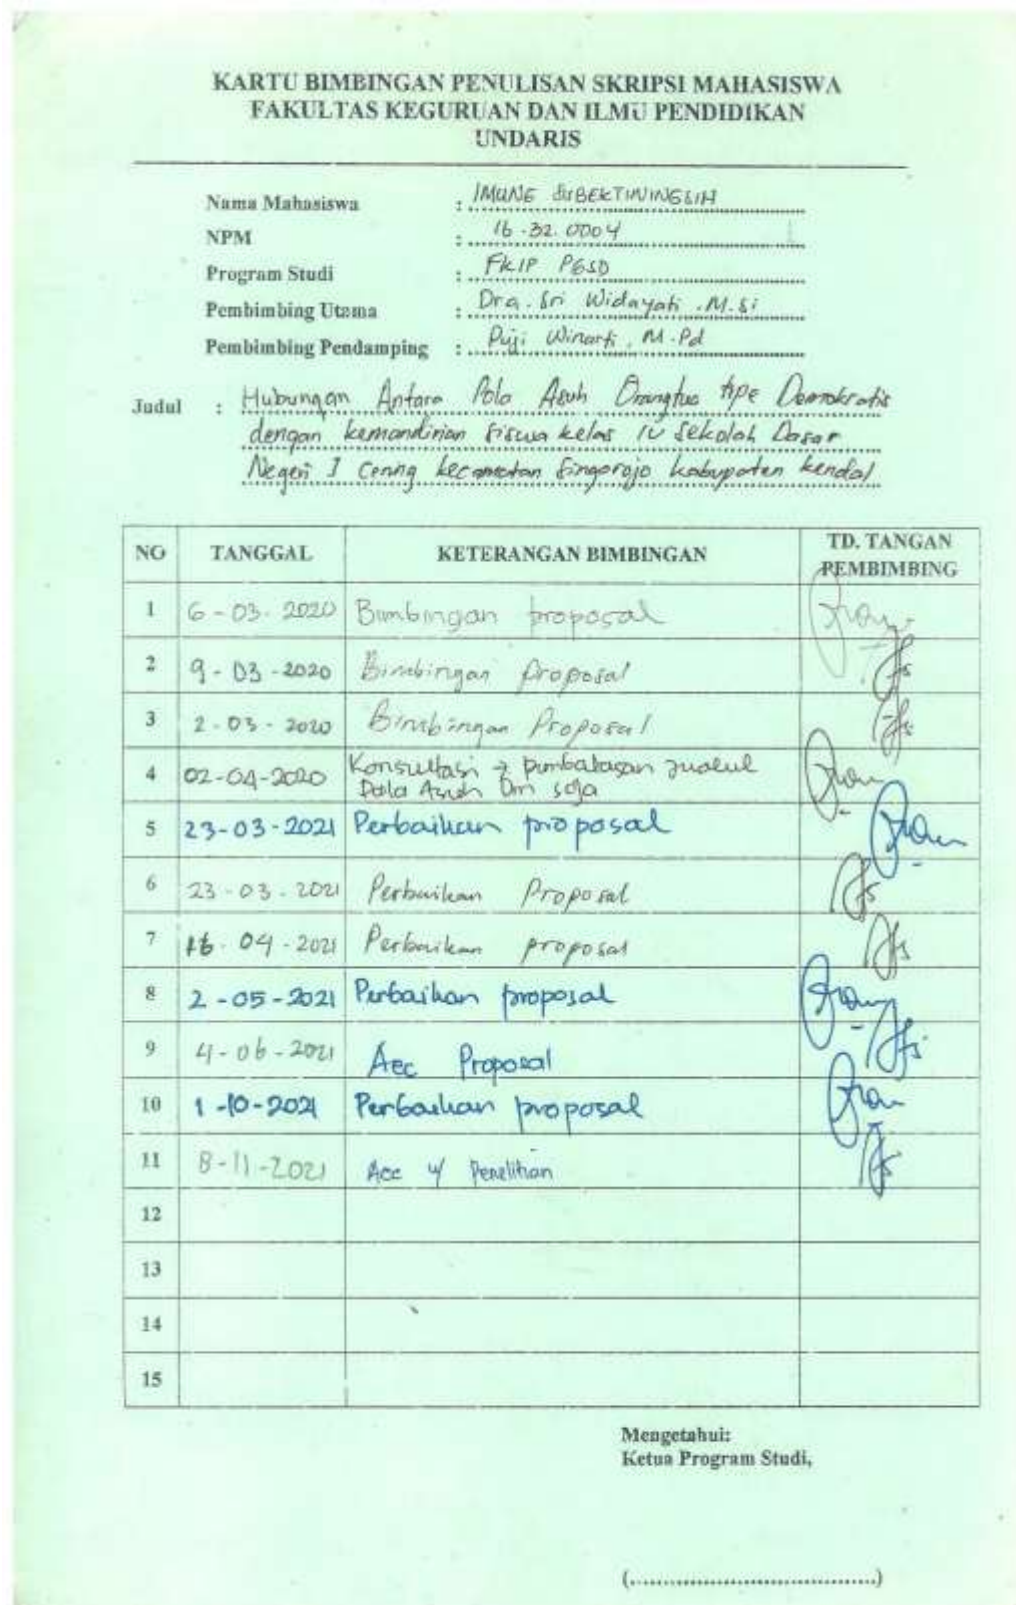 KARTU BIMBINGAN PENULISAN SKRIPSI MAHASISWA
FAKULTAS KEGURUAN DAN ILMU PENDIDIKAN
UNDARIS
Nama Mahasiswa : IMUNE SUBEKTININGSIH
NPM : 16.32.0004
Program Studi : FKIP PGSD
Pembimbing Utama : Dra. Sri Widayati .M.Si
Pembimbing Pendamping : Puji Winarti, M.Pd
Judul : Hubungan Antara Pola Asuh Orangtua tipe Demokratis
dengan kemandirian siswa kelas IV Sekolah Dasar
Negeri kecamatan Singorojo kabupaten kendal
NO TANGGAL KETERANGAN BIMBINGAN TD. TANGAN PEMBIMBING
1 6-03-2020 Bimbingan proposal
2 9-03-2020 Bimbingan Proposal
3 2-03-2020 Bimbingan Proposal
4 02-04-2020 Konsultasi → pembatasan
Pola Asuh saja
5 23-03-2021 Perbaikan proposal
6 23-03-2021 Perbaikan Proposal
7 16-04-2021 Perbaikan proposal
8 2-05-2021 Perbaikan proposal
9 4-06-2021 Acc Proposal
10 1-10-2021 Perbaikan proposal
11 8-11-2021 Acc Penelitian
12
13
14
15
Mengetahui:
Ketua Program Studi,
(....................................)